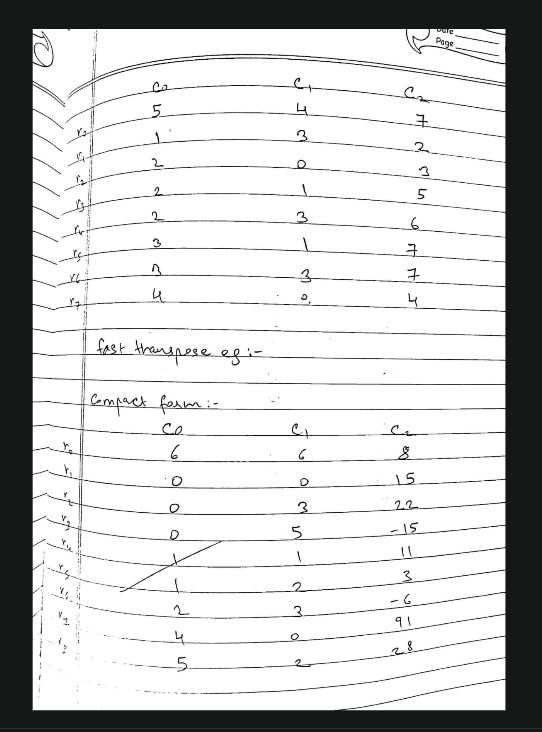 Date
Page
C0 C1 C2
r0 5 4 7
r1 1 3 2
r2 2 0 3
r3 2 1 5
r4 2 3 6
r5 3 1 7
r6 3 3 7
r7 4 0 4
fast transpose eg :-
Compact form :-
C0 C1 C2
r0 6 6 8
r1 0 0 15
r2 0 3 22
r3 0 5 -15
r4 1 1 11
r5 1 2 3
r6 2 3 -6
r7 4 0 91
r8 5 2 28